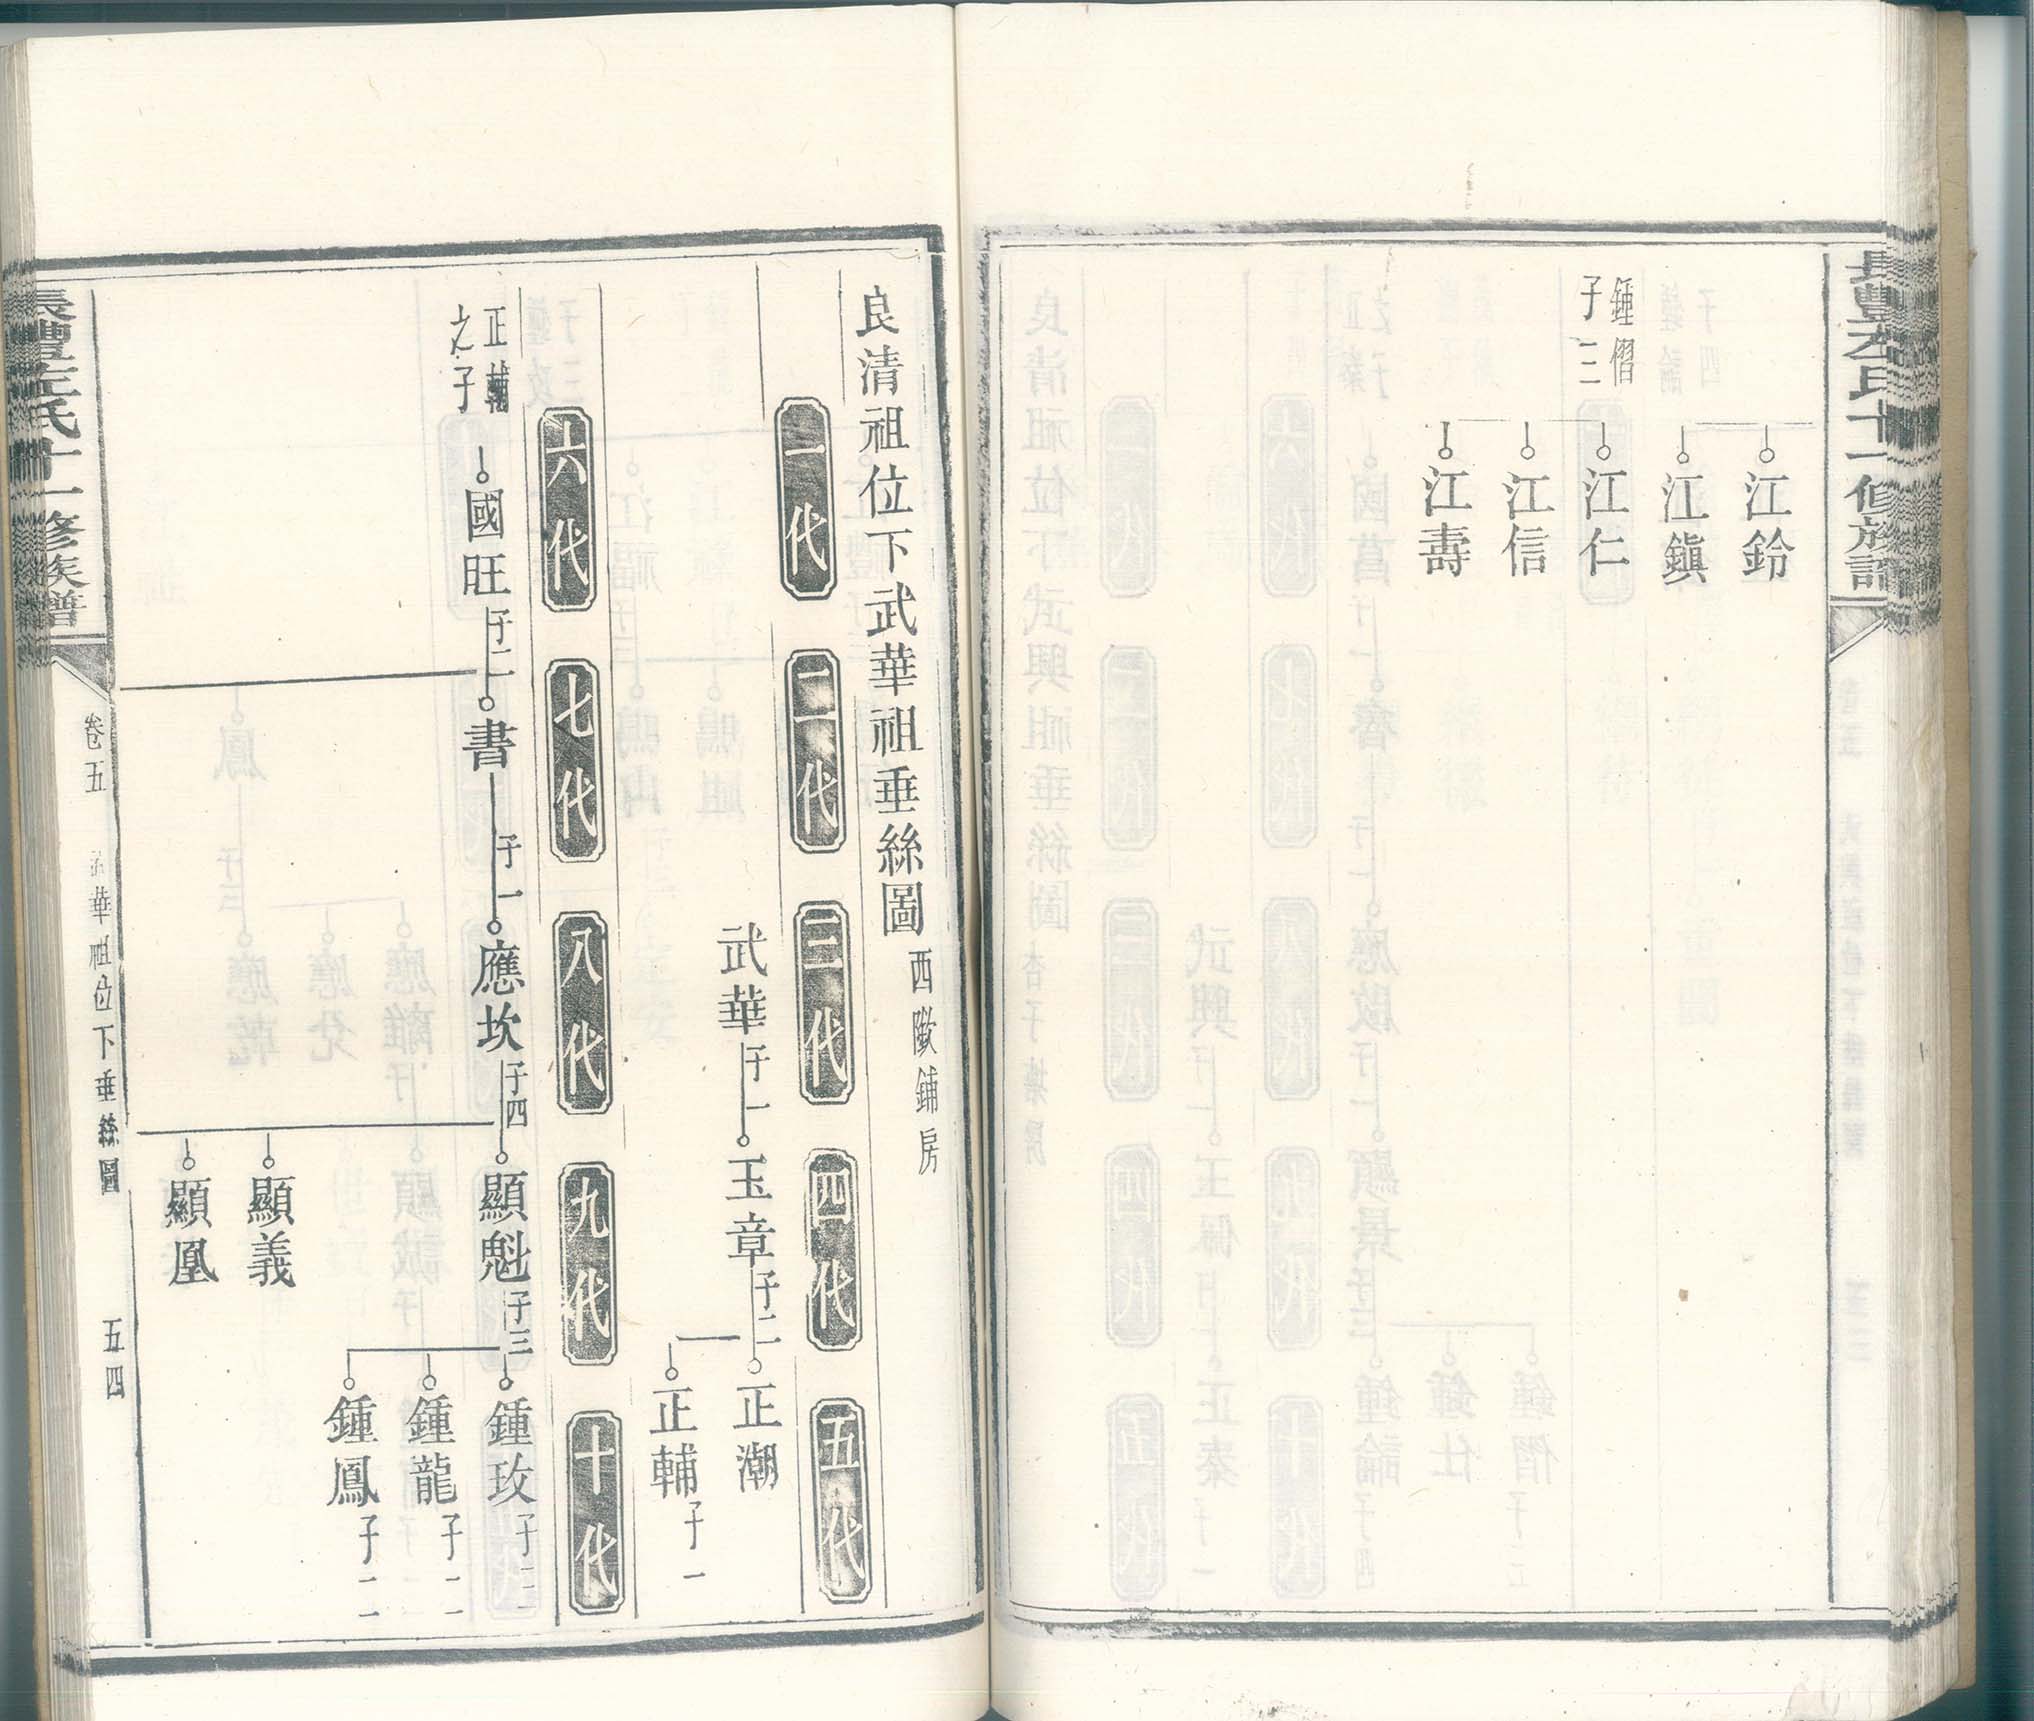 長豐左氏十一修族譜
江鈴
江鎮
鍾傛
子三
江仁
江信
江壽
良清祖位下武華祖垂絲圖 西歐鋪房
一代 二代 三代 四代 五代
武華 子一 玉章 子二 正潮
正輔 子一
六代 七代 八代 九代 十代
正輔
之子
國旺 子二 書 子一 應坎 子四 顯魁 子三 鍾玫 子二
鍾龍 子二
鍾鳳 子二
顯義
顯凰
長豐左氏十一修族譜 卷五 華祖位下垂絲圖 五四